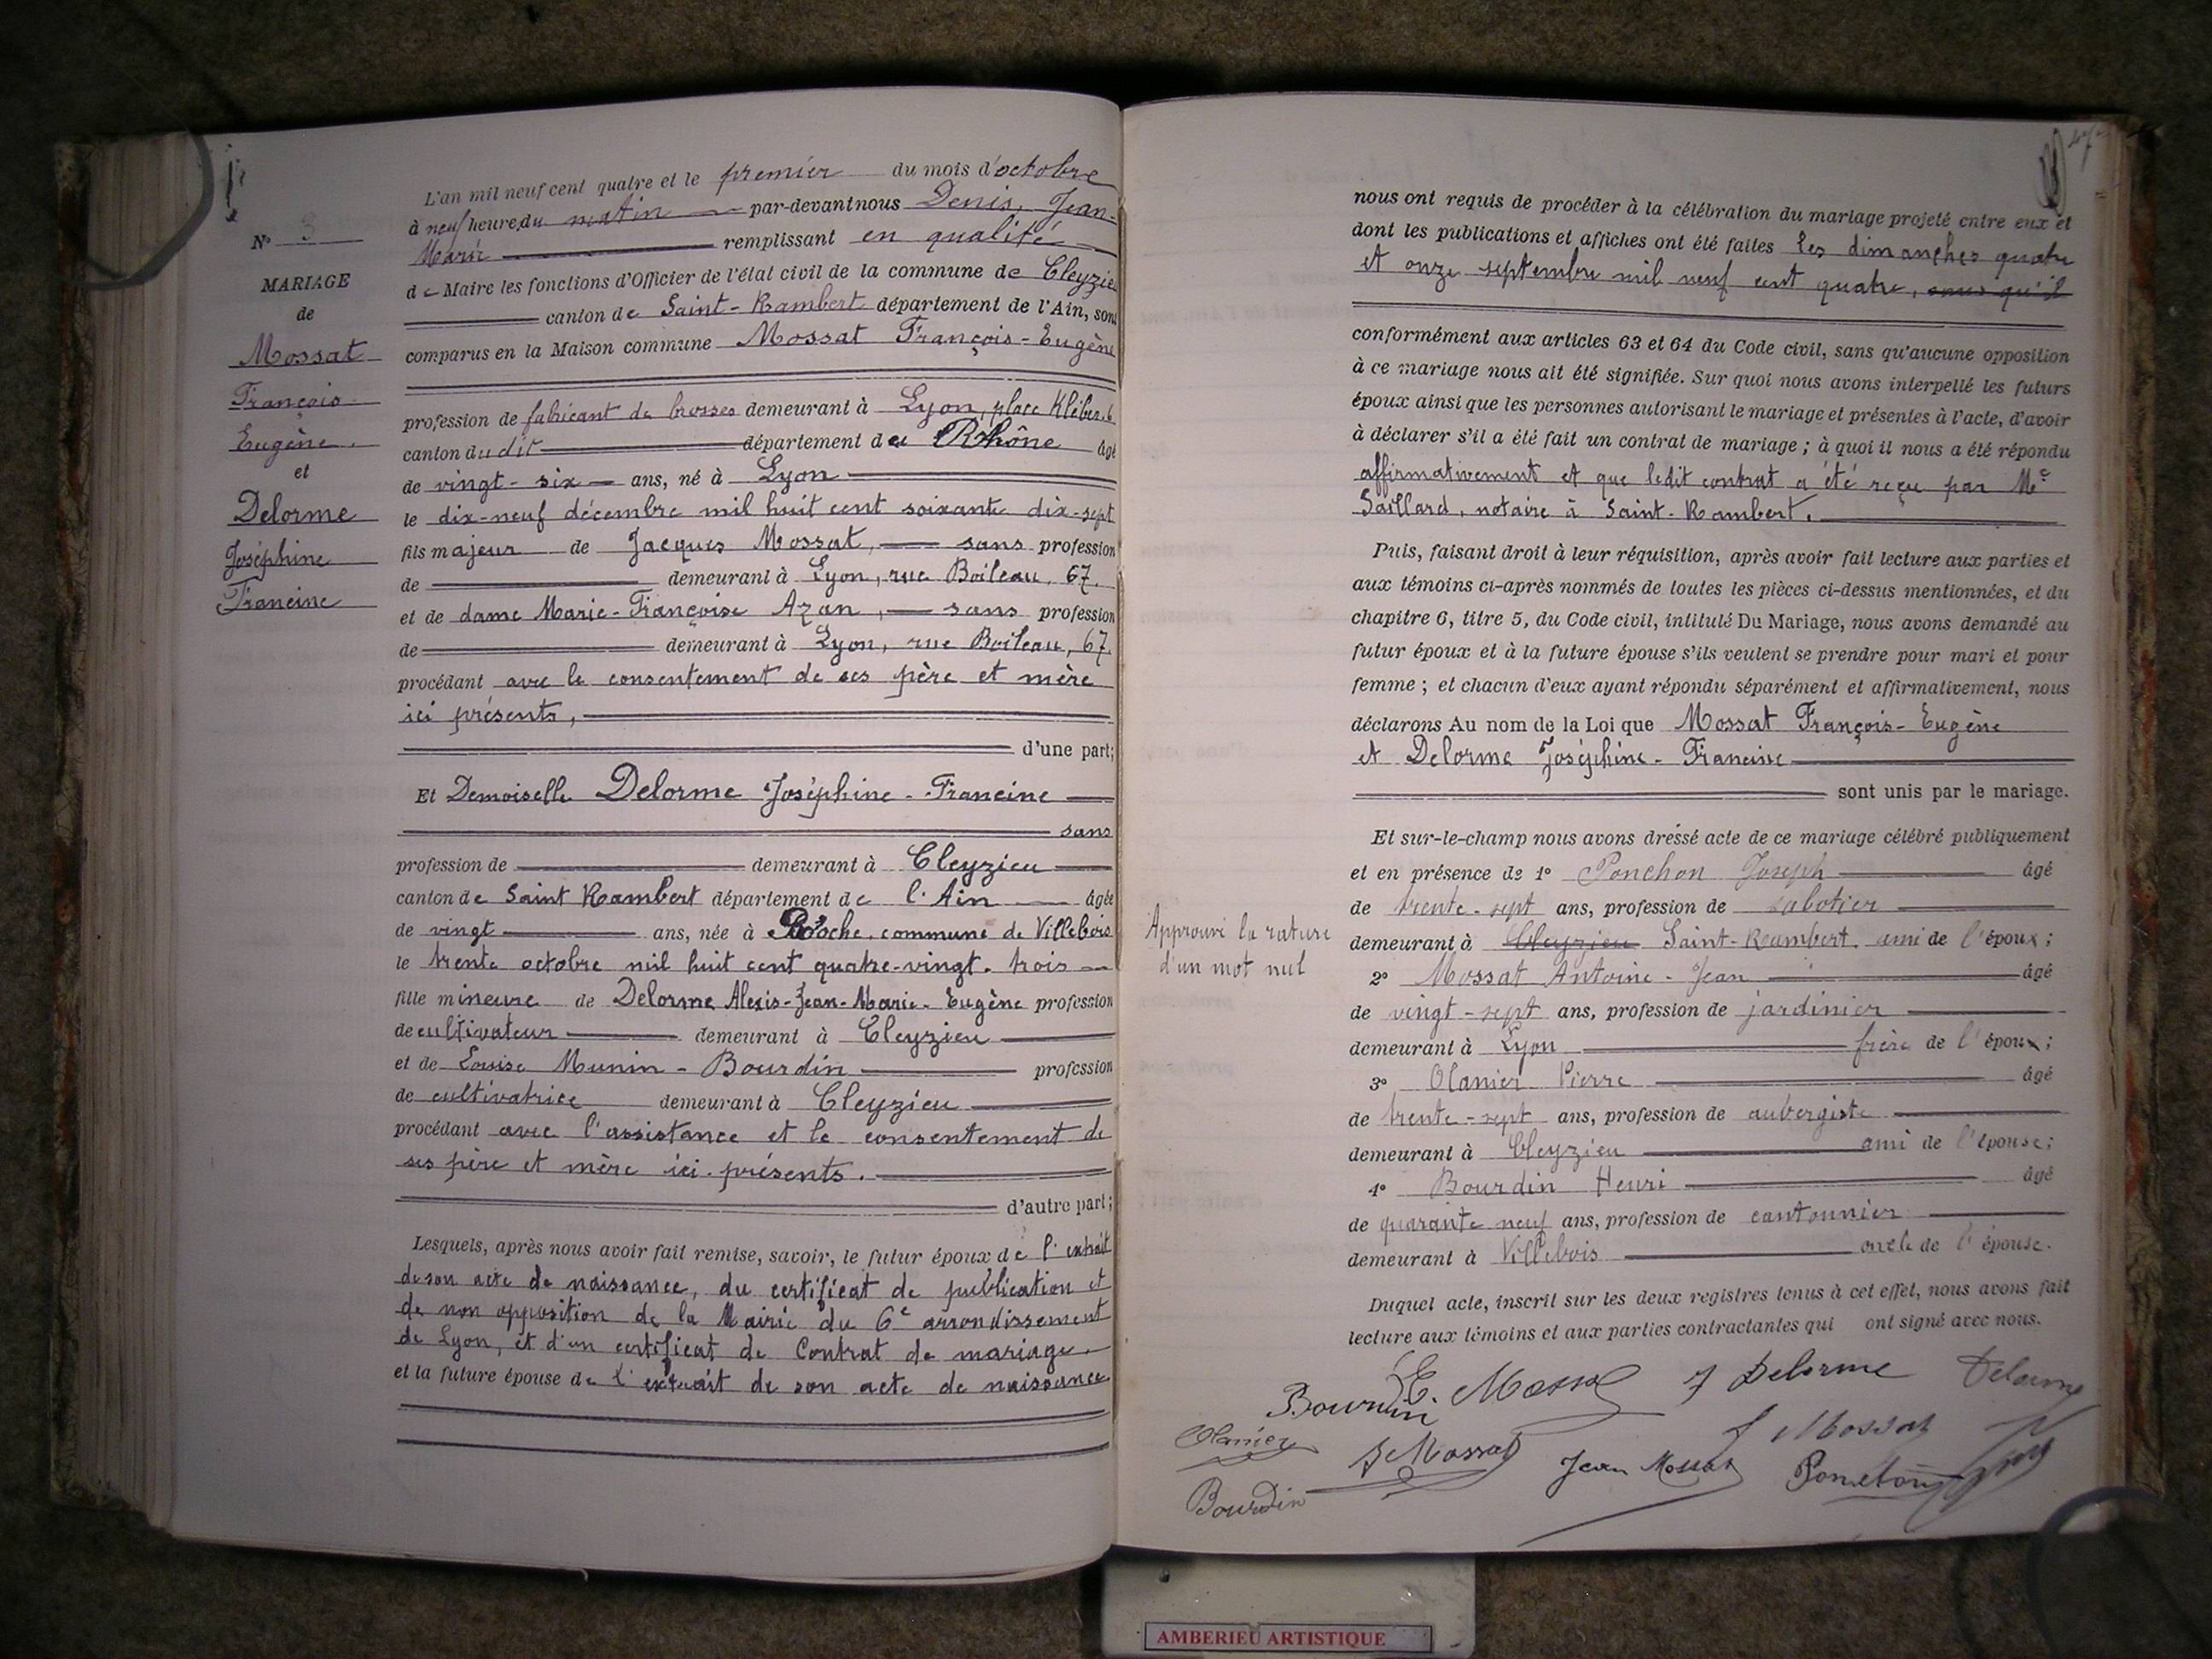 N° 3
MARIAGE
de
Mossat
François
Eugène.
et
Delorme
Joséphine
Francine
L'an mil neuf cent quatre et le premier du mois d'octobre
à neuf heure du matin par-devant nous Denis, Jean-
Marie remplissant en qualité
de Maire les fonctions d'Officier de l'état civil de la commune de Cleyzieu
canton de Saint-Rambert département de l'Ain, sont
comparus en la Maison commune Mossat François-Eugène
profession de fabricant de brosses demeurant à Lyon, place Kléber, 6
canton dudit département du Rhône âgé
de vingt-six ans, né à Lyon
le dix-neuf décembre mil huit cent soixante dix-sept
fils majeur de Jacques Mossat, sans profession
de demeurant à Lyon, rue Boileau, 67.
et de dame Marie-Françoise Azan, sans profession
de demeurant à Lyon, rue Boileau, 67.
procédant avec le consentement de ses père et mère
ici présents,
d'une part;
Et Demoiselle Delorme Joséphine-Francine
sans
profession de demeurant à Cleyzieu
canton de Saint Rambert département de l'Ain âgée
de vingt ans, née à Roche, commune de Villebois
le trente octobre mil huit cent quatre-vingt-trois
fille mineure de Delorme Alexis-Jean-Marie-Eugène profession
de cultivateur demeurant à Cleyzieu
et de Louise Munin-Bourdin profession
de cultivatrice demeurant à Cleyzieu
procédant avec l'assistance et le consentement de
ses père et mère ici présents.
d'autre part;
Lesquels, après nous avoir fait remise, savoir, le futur époux de l'extrait
de son acte de naissance, du certificat de publication et
de non opposition de la Mairie du 6e arrondissement
de Lyon, et d'un certificat de Contrat de mariage.
et la future épouse de l'extrait de son acte de naissance
nous ont requis de procéder à la célébration du mariage projeté entre eux et
dont les publications et affiches ont été faites les dimanches quatre
et onze septembre mil neuf cent quatre, sans qu'il
conformément aux articles 63 et 64 du Code civil, sans qu'aucune opposition
à ce mariage nous ait été signifiée. Sur quoi nous avons interpellé les futurs
époux ainsi que les personnes autorisant le mariage et présentes à l'acte, d'avoir
à déclarer s'il a été fait un contrat de mariage ; à quoi il nous a été répondu
affirmativement et que ledit contrat a été reçu par Me
Saillard, notaire à Saint-Rambert.
Puis, faisant droit à leur réquisition, après avoir fait lecture aux parties et
aux témoins ci-après nommés de toutes les pièces ci-dessus mentionnées, et du
chapitre 6, titre 5, du Code civil, intitulé Du Mariage, nous avons demandé au
futur époux et à la future épouse s'ils veulent se prendre pour mari et pour
femme ; et chacun d'eux ayant répondu séparément et affirmativement, nous
déclarons Au nom de la Loi que Mossat François-Eugène
et Delorme Joséphine-Francine
sont unis par le mariage.
Et sur-le-champ nous avons dressé acte de ce mariage célébré publiquement
et en présence de 1° Ponchon Joseph âgé
de trente-sept ans, profession de sabotier
Approuvé la rature
d'un mot nul
demeurant à Cleyzieu Saint-Rambert. ami de l'époux ;
2° Mossat Antoine-Jean âgé
de vingt-sept ans, profession de jardinier
demeurant à Lyon frère de l'époux ;
3° Olanier Pierre âgé
de trente-sept ans, profession de aubergiste
demeurant à Cleyzieu ami de l'épouse ;
4° Bourdin Henri âgé
de quarante neuf ans, profession de cantonnier
demeurant à Villebois oncle de l'épouse.
Duquel acte, inscrit sur les deux registres tenus à cet effet, nous avons fait
lecture aux témoins et aux parties contractantes qui ont signé avec nous.
E. Mossat J Delorme Delorme
Bourdin
Olanier J Mossat
Mossat Jean Mossat Ponchon
Bourdin
AMBERIEU ARTISTIQUE